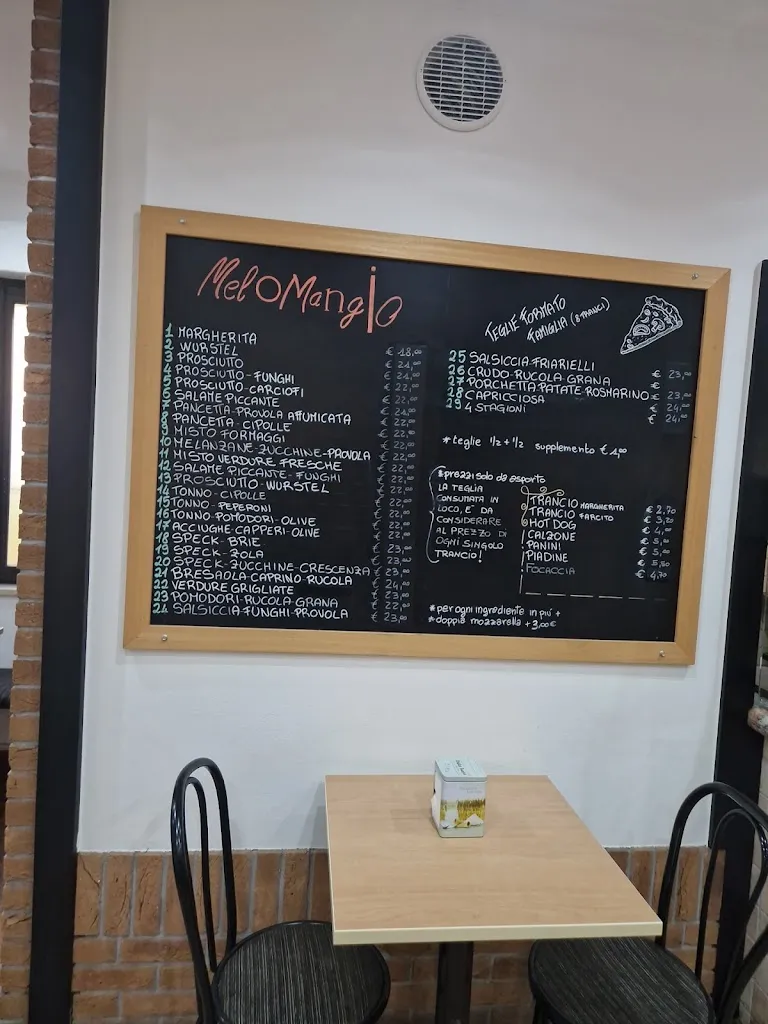 MeloMangio
1 MARGHERITA
2 WURSTEL
3 PROSCIUTTO
4 PROSCIUTTO-FUNGHI
5 PROSCIUTTO-CARCIOFI
6 SALAME PICCANTE
7 PANCETTA-PROVOLA AFFUMICATA
8 PANCETTA-CIPOLLE
9 MISTO FORMAGGI
10 MELANZANE-ZUCCHINE-PROVOLA
11 MISTO VERDURE FRESCHE
12 SALAME PICCANTE-FUNGHI
13 PROSCIUTTO-WURSTEL
14 TONNO-CIPOLLE
15 TONNO-PEPERONI
16 TONNO-POMODORI-OLIVE
17 ACCIUGHE-CAPPERI-OLIVE
18 SPECK-BRIE
19 SPECK-ZOLA
20 SPECK-ZUCCHINE-CRESCENZA
21 BRESAOLA-CAPRINO-RUCOLA
22 VERDURE GRIGLIATE
23 POMODORI-RUCOLA-GRANA
24 SALSICCIA-FUNGHI-PROVOLA
€ 18,00
€ 21,00
€ 21,00
€ 22,00
€ 22,00
€ 21,00
€ 22,00
€ 22,00
€ 22,00
€ 22,00
€ 22,00
€ 22,00
€ 22,00
€ 22,00
€ 22,00
€ 22,00
€ 22,00
€ 23,00
€ 23,00
€ 23,00
€ 24,00
€ 23,00
€ 22,00
€ 23,00
TEGLIE FORMATO
FAMIGLIA (8 TRANCI)
25 SALSICCIA-FRIARIELLI
26 CRUDO-RUCOLA GRANA
27 PORCHETTA PATATE ROSMARINO
28 CAPRICCIOSA
29 4 STAGIONI
€ 23,00
€ 23,00
€ 24,00
€ 24,00
*teglie 1/2 + 1/2 supplemento € 1,00
*prezzi solo da asporto
LA TEGLIA
CONSUMATA IN
LOCO, E' DA
CONSIDERARE
AL PREZZO DI
OGNI SINGOLO
TRANCIO!
TRANCIO MARGHERITA € 2,70
TRANCIO FARCITO € 3,20
HOT DOG € 4,00
CALZONE € 5,00
PANINI € 5,00
PIADINE € 5,50
FOCACCIA € 4,70
*per ogni ingrediente in più +
*doppia mozzarella + 3,00€